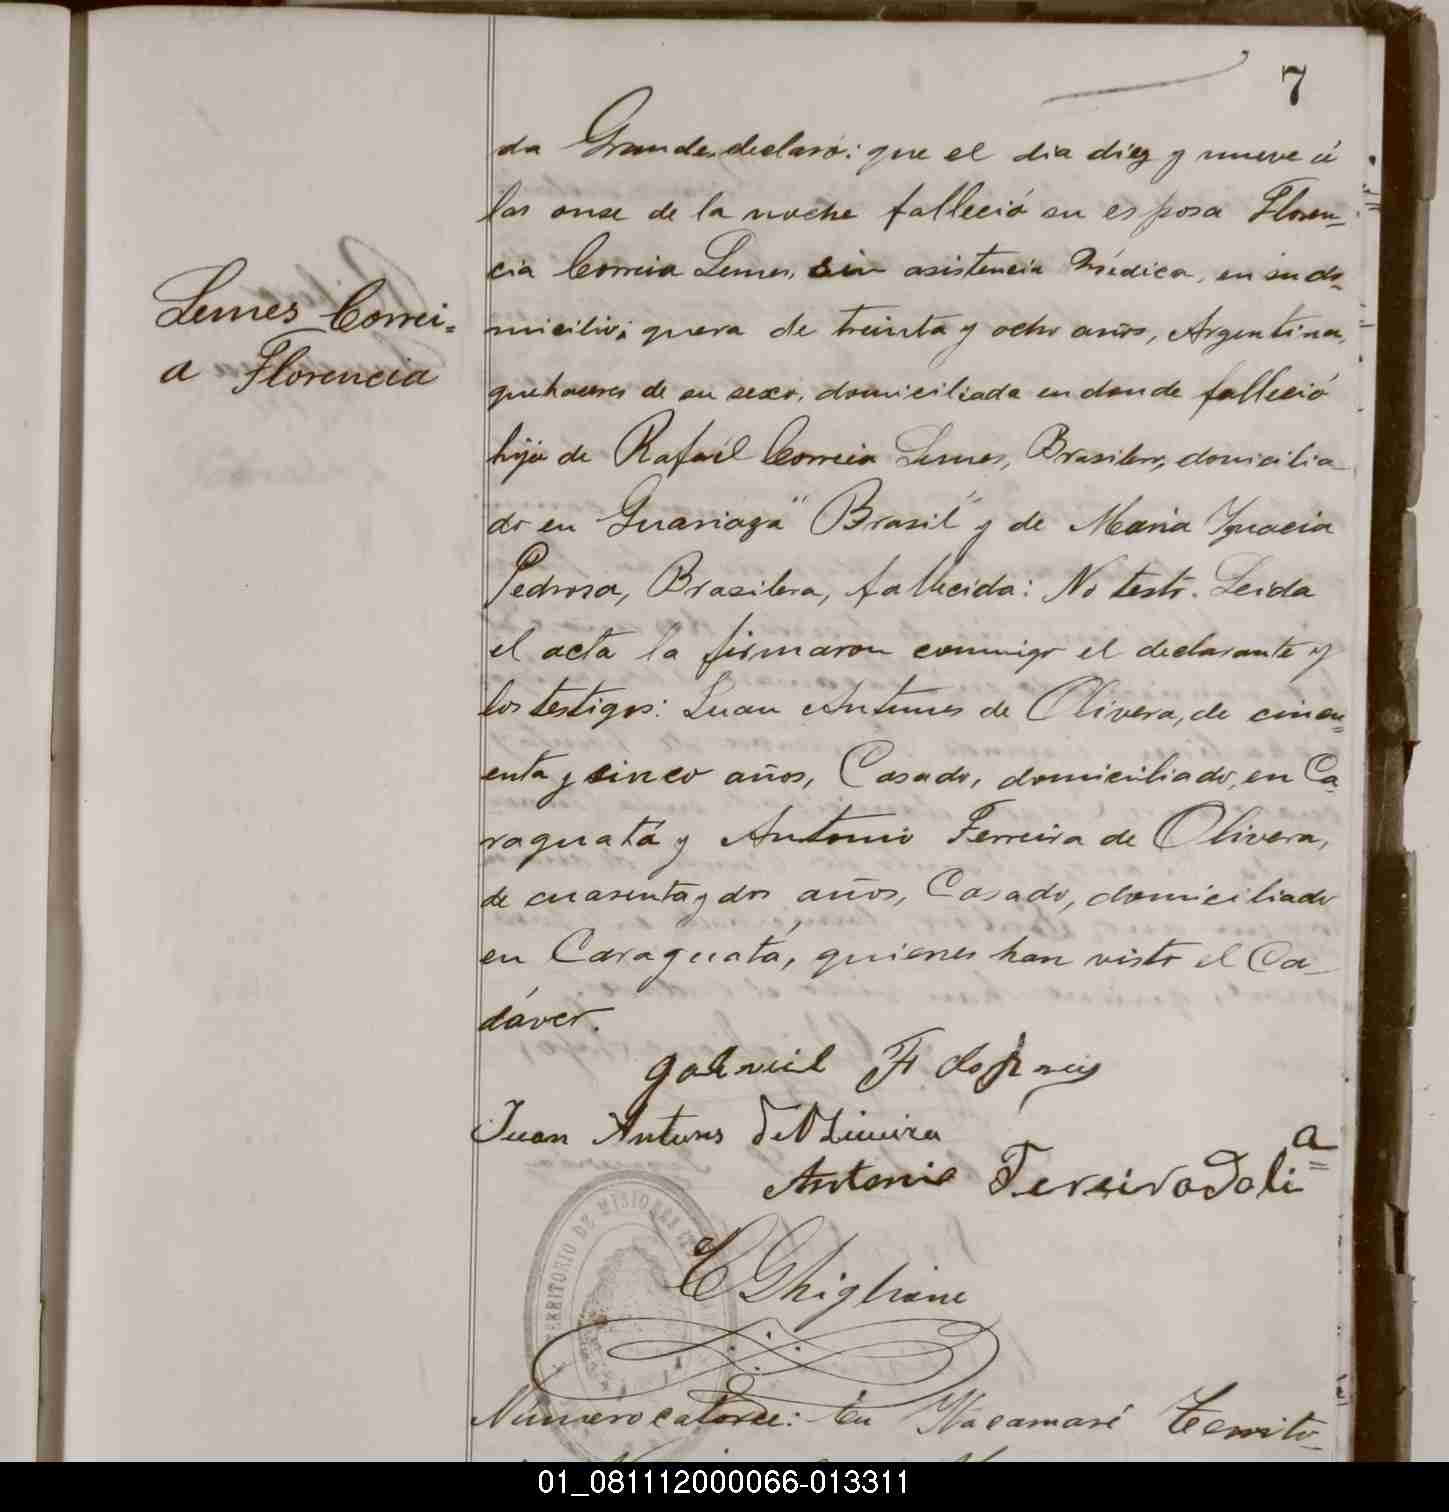 7
da Grande, declaró: que el dia diez y nueve á
las onse de la noche falleció su esposa Floren=
cia Correia Lemes, sin asistencia Médica, en su do=
micilio; quera de treinta y ocho años, Argentina,
quehaceres de su sexo, domiciliada en donde falleció
hija de Rafaél Correia Lemes, Brasilero, domicilia
do en Guariaza "Brasil" y de Maria Ygnacia
Pedrosa, Brasilera, fallecida: No testó. Leida
el acta la firmaron conmigo el declarante y
los testigos: Juan Antunes de Olivera, de cincu=
enta y cinco años, Casado, domiciliado, en Ca=
raguatá y Antonio Ferreira de Olivera,
de cuarenta y dos años, Casado, domiciliado
en Caraguatá, quienes han visto el Ca
dáver.
Lemes Correi=
a Florencia
Gabriel F
Juan Antunes
Antonio
a
C Ghiglione
TERRITORIO DE MISIONES
Número catorce: En Ytacamaré Territo=
01_081112000066-013311